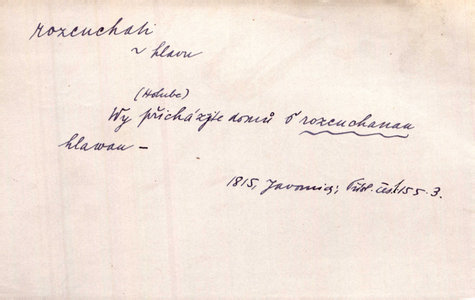 rozcuchati
~ hlavu
(Holubc)
Wy přicházýte domů s rozcuchanau
hlawau –
1815, Javornic; čes. 155. 3.